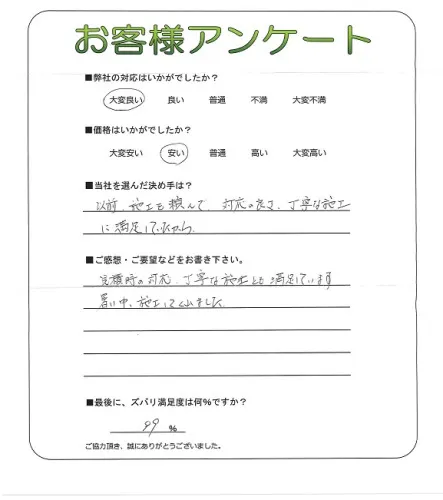 お客様アンケート
■弊社の対応はいかがでしたか？
大変良い 良い 普通 不満 大変不満
■価格はいかがでしたか？
大変安い 安い 普通 高い 大変高い
■当社を選んだ決め手は？
以前、施工を頼んで、対応の良さ、丁寧な施工
に満足していたから
■ご感想・ご要望などをお書き下さい。
見積時の対応、丁寧な施工とも満足しています
暑い中、施工して下さいました
■最後に、ズバリ満足度は何%ですか？
99 %
ご協力頂き、誠にありがとうございました。